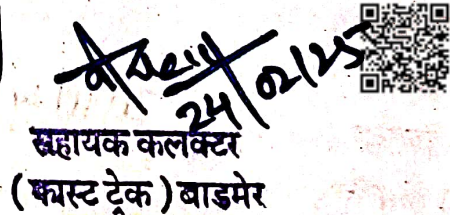 24/02/25
सहायक कलक्टर
(फास्ट ट्रेक) बाडमेर